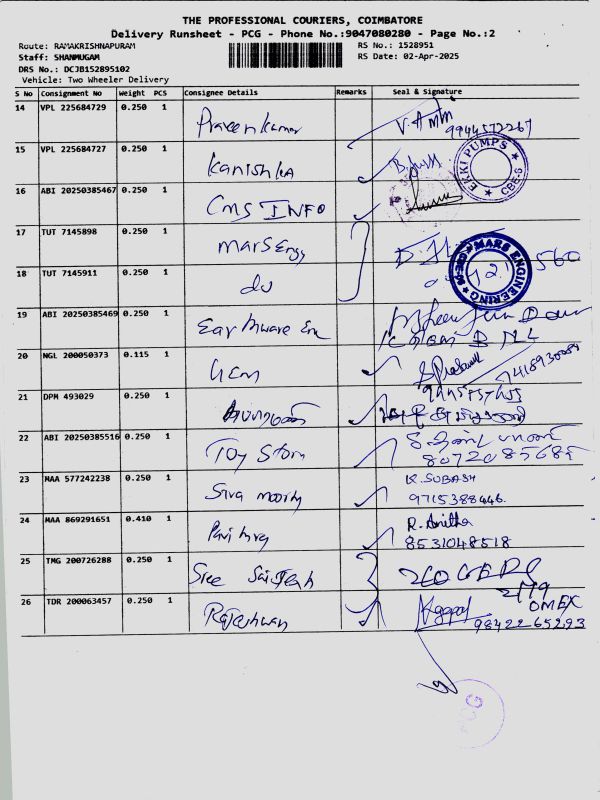 THE PROFESSIONAL COURIERS, COIMBATORE
Delivery Runsheet - PCG - Phone No.:9047080280 - Page No.:2
Route: RAMAKRISHNAPURAM
RS No.: 1528951
Staff: SHANMUGAM
RS Date: 02-Apr-2025
DRS No.: DCJB152895102
Vehicle: Two Wheeler Delivery
S No Consignment No Weight PCS Consignee Details Remarks Seal & Signature
14 VPL 225684729 0.250 1 Praveen kumar
9944572267
15 VPL 225684727 0.250 1 Kanishka
EKKI PUMPS CBE-6
16 ABI 20250385467 0.250 1 CMS INFO
17 TUT 7145898 0.250 1 Mars Engg
MARS ENGINEERING
18 TUT 7145911 0.250 1 do
19 ABI 20250385469 0.250 1
20 NGL 200050373 0.115 1
21 DPM 493029 0.250 1
22 ABI 20250385516 0.250 1 Toy Story
8072085685
23 MAA 577242238 0.250 1 Siva moorthy
K. SUBASH
9715388446.
24 MAA 869291651 0.410 1
R. Anitha
8531048518
25 TMG 200726288 0.250 1 Sree
26 TDR 200063457 0.250 1 Rajeshwari
OMEX
9842265293